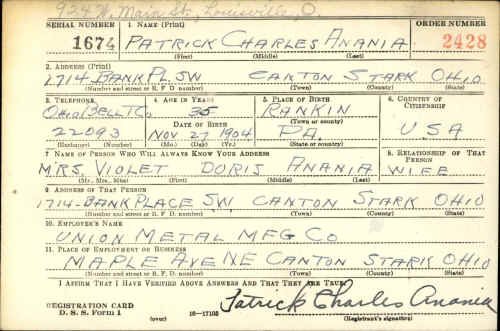 934 W. Main St., Louisville, O.
SERIAL NUMBER 1. NAME (Print) ORDER NUMBER
1674 PATRICK CHARLES ANANIA 2428
(First) (Middle) (Last)
2. ADDRESS (Print)
1714-BANK PL. SW CANTON STARK OHIO
(Number and street or R. F. D. number) (Town) (County) (State)
3. TELEPHONE 4. AGE IN YEARS 5. PLACE OF BIRTH 6. COUNTRY OF CITIZENSHIP
OHIO BELL T Co 35 RANKIN
DATE OF BIRTH (Town or county)
22093 NOV 27 1904 PA. USA
(Exchange) (Number) (Mo.) (Day) (Yr.) (State or country)
7. NAME OF PERSON WHO WILL ALWAYS KNOW YOUR ADDRESS 8. RELATIONSHIP OF THAT PERSON
MRS. VIOLET DORIS ANANIA WIFE
(Mr., Mrs., Miss) (First) (Middle) (Last)
9. ADDRESS OF THAT PERSON
1714-BANK PLACE SW CANTON STARK OHIO
(Number and street or R. F. D. number) (Town) (County) (State)
10. EMPLOYER'S NAME
UNION METAL MFG CO
11. PLACE OF EMPLOYMENT OR BUSINESS
MAPLE AVE NE CANTON STARK OHIO
(Number and street or R. F. D. number) (Town) (County) (State)
I AFFIRM THAT I HAVE VERIFIED ABOVE ANSWERS AND THAT THEY ARE TRUE.
REGISTRATION CARD Patrick Charles Anania
D. S. S. Form 1 (over) 16-17105 (Registrant's signature)